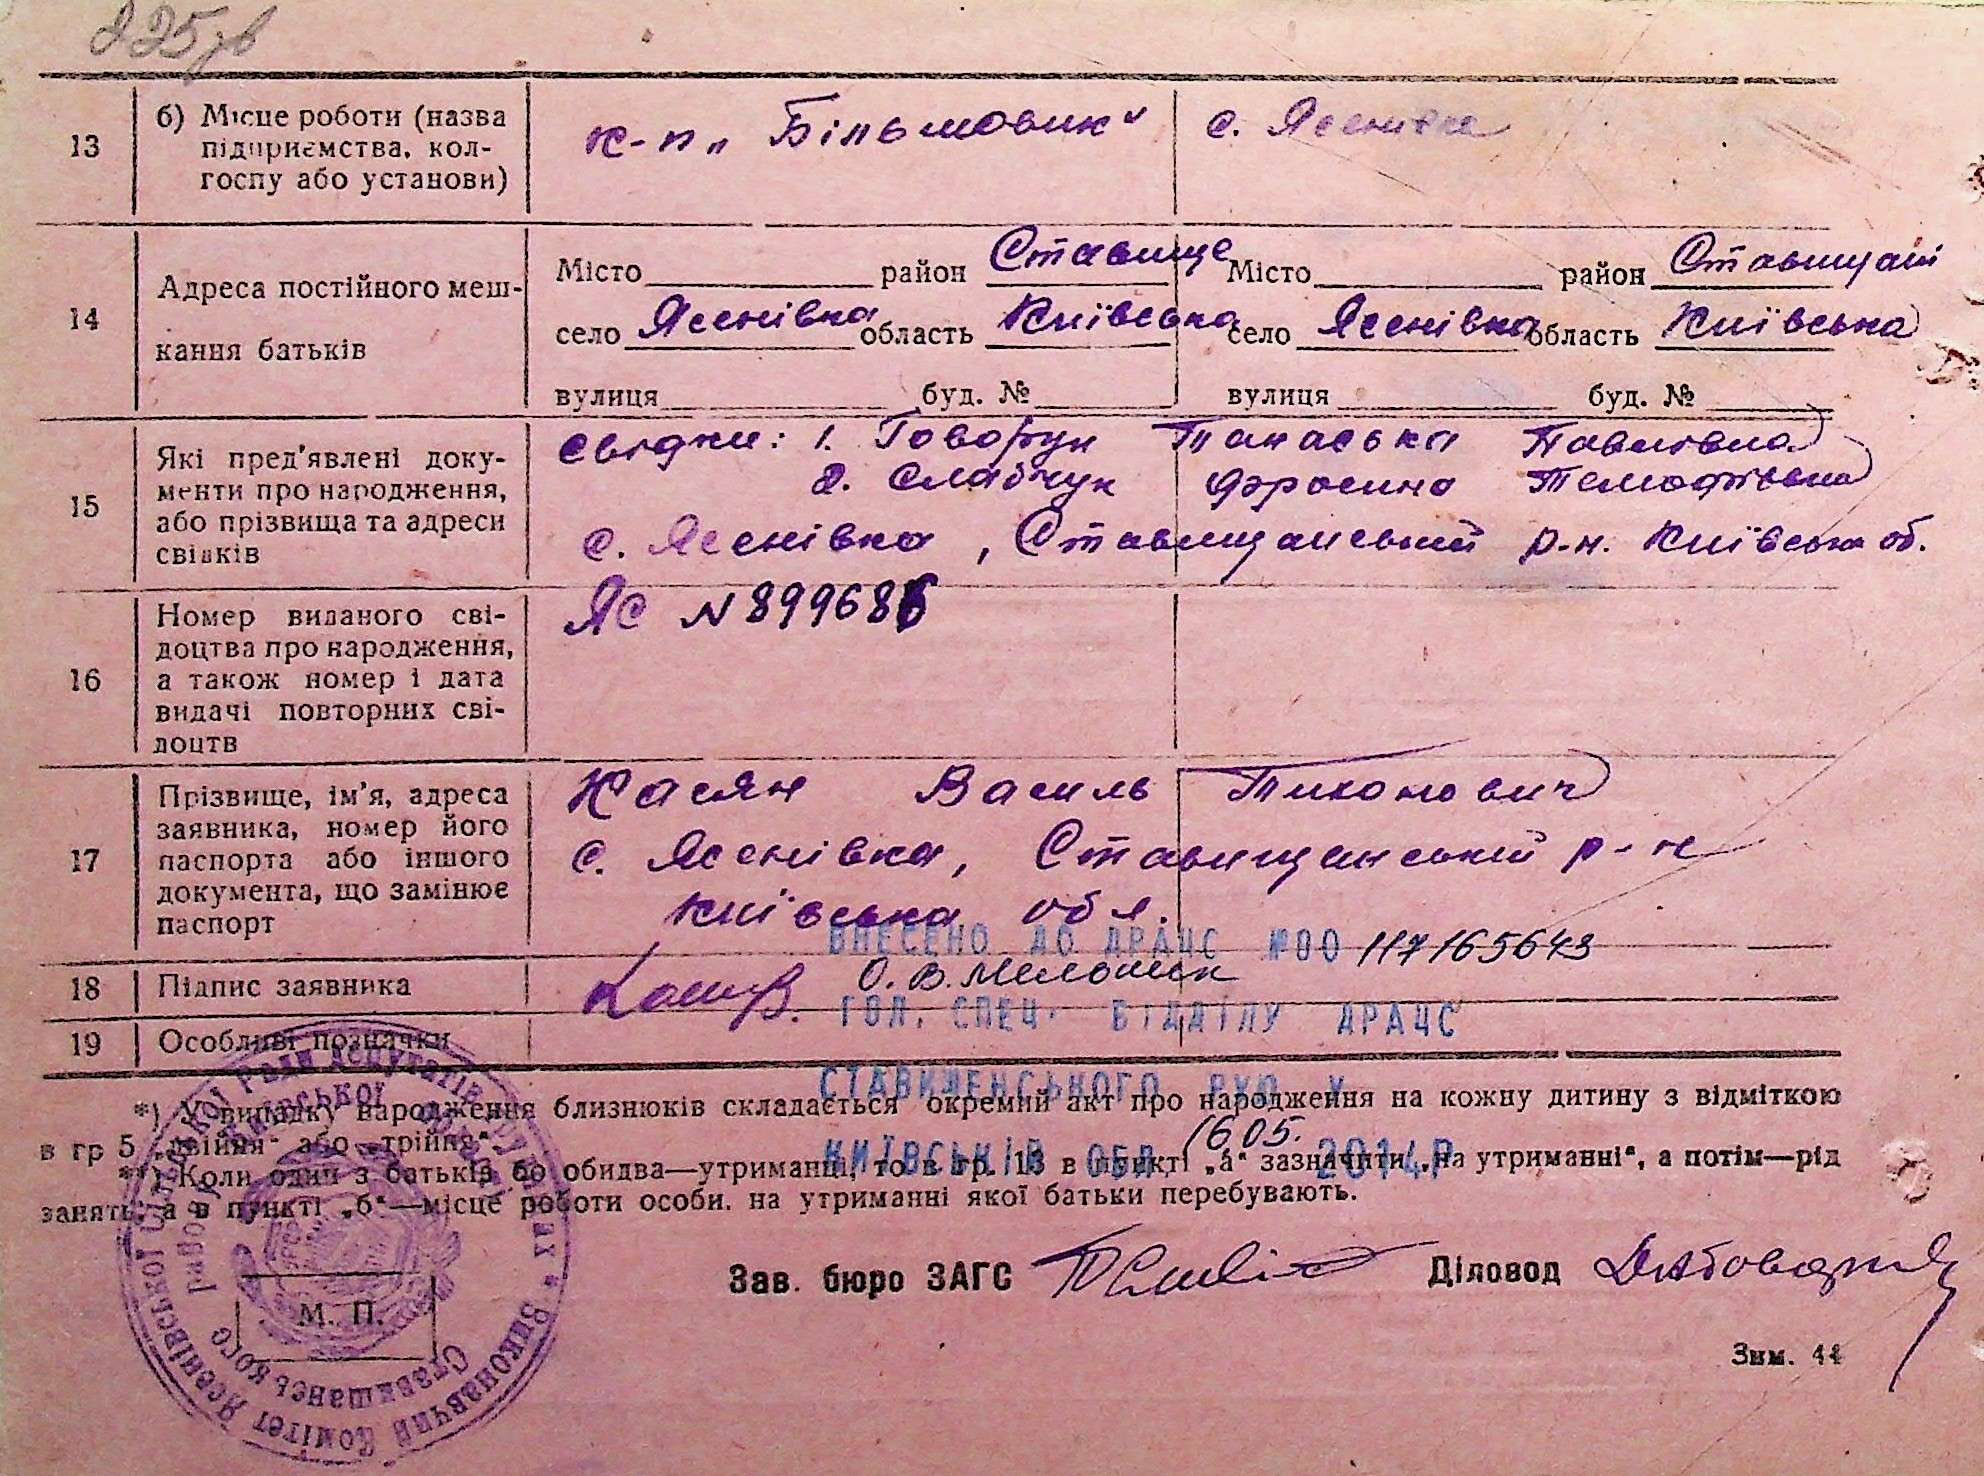 225зв
13
б) Місце роботи (назва
підприємства, кол-
госпу або установи)
к-п „Більшовик"
с. Ясенівка
14
Адреса постійного меш-
кання батьків
Місто район Ставище
село Ясенівка область Київська
вулиця буд. №
Місто район Ставищан
село Ясенівка область Київська
вулиця буд. №
15
Які пред'явлені доку-
менти про народження,
або прізвища та адреси
свідків
Свідки: 1. Говорун Танаська Павлівна
2. Слабчук Фросина
с. Ясенівка, Ставищанський р-н. Київська об.
16
Номер виданого сві-
доцтва про народження,
а також номер і дата
видачі повторних сві-
доцтв
ЯС N 899686
17
Прізвище, ім'я, адреса
заявника, номер його
паспорта або іншого
документа, що замінює
паспорт
Касян Василь Тихонович
с. Ясенівка, Ставищанський р-н
Київська обл.
ВНЕСЕНО ДО ДРАЦС №00 117165643
18
Підпис заявника
О.В.Мельник
ГОЛ. СПЕЦ. ВІДДІЛУ ДРАЦС
19
Особливі позначки
СТАВИЩЕНСЬКОГО РУЮ У
*) У випадку народження близнюків складається окремий акт про народження на кожну дитину з відміткою
в гр 5 „двійня" або „трійня"
КИЇВСЬКІЙ ОБЛ. 16.05. 2014Р
**) Коли один з батьків бо обидва—утриманці, то в гр. 13 в пункті „а" зазначити „на утриманні", а потім—рід
занять, а в пункті „б"—місце роботи особи. на утриманні якої батьки перебувають.
Зав. бюро ЗАГС
Діловод
М. П.
Виконавчий Комітет Ясенівської Сільської Ради депутатів трудящих
Ставищанського району Київської
Зим. 44